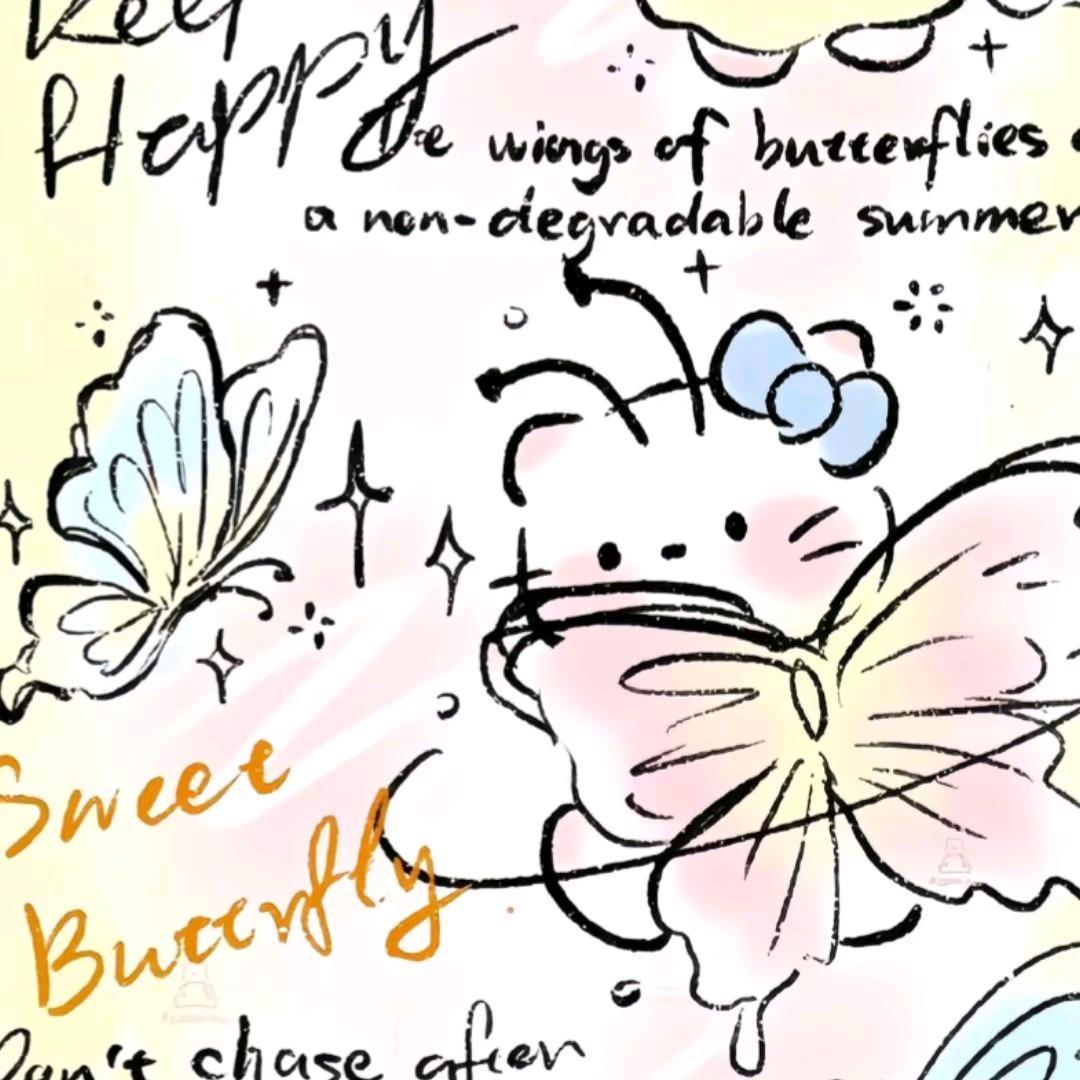 Keep
Happy
The wings of butterflies
a non-degradable summer
Sweet
Butterfly
Don't chase after